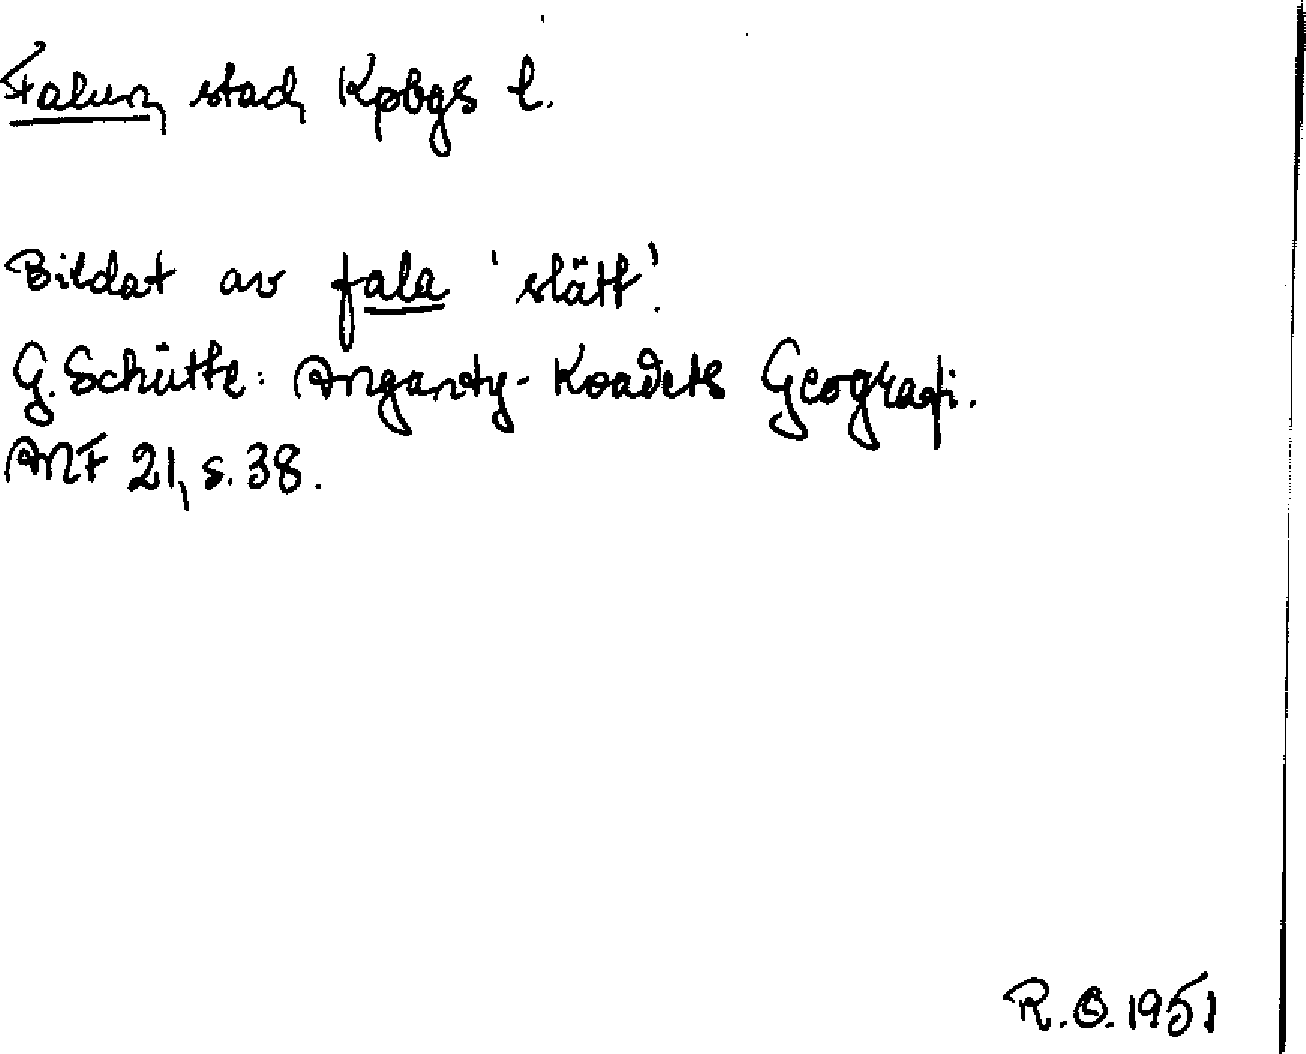 Falun, stad, Kpbgs l.
Bildat av fala 'slätt'.
G. Schütte: Anganty-Kvadets Geografi.
ANF 21, s. 38.
R.O. 1951